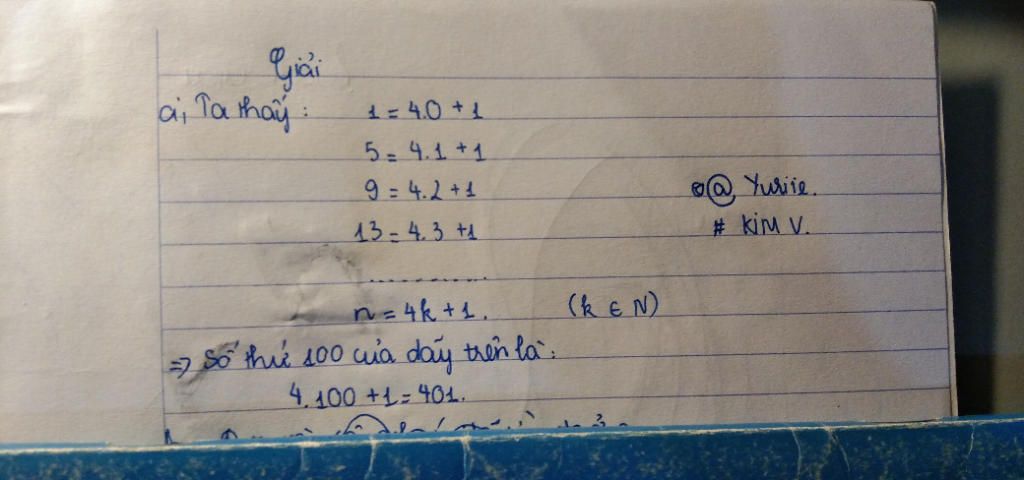 Giải
a, Ta thấy: 1 = 4.0 + 1
5 = 4.1 + 1
9 = 4.2 + 1
13 = 4.3 + 1
@ Yuriie.
# KiM V.
..............
n = 4k + 1. (k ∈ N)
=> Số thứ 100 của dãy trên là:
4.100 + 1 = 401.